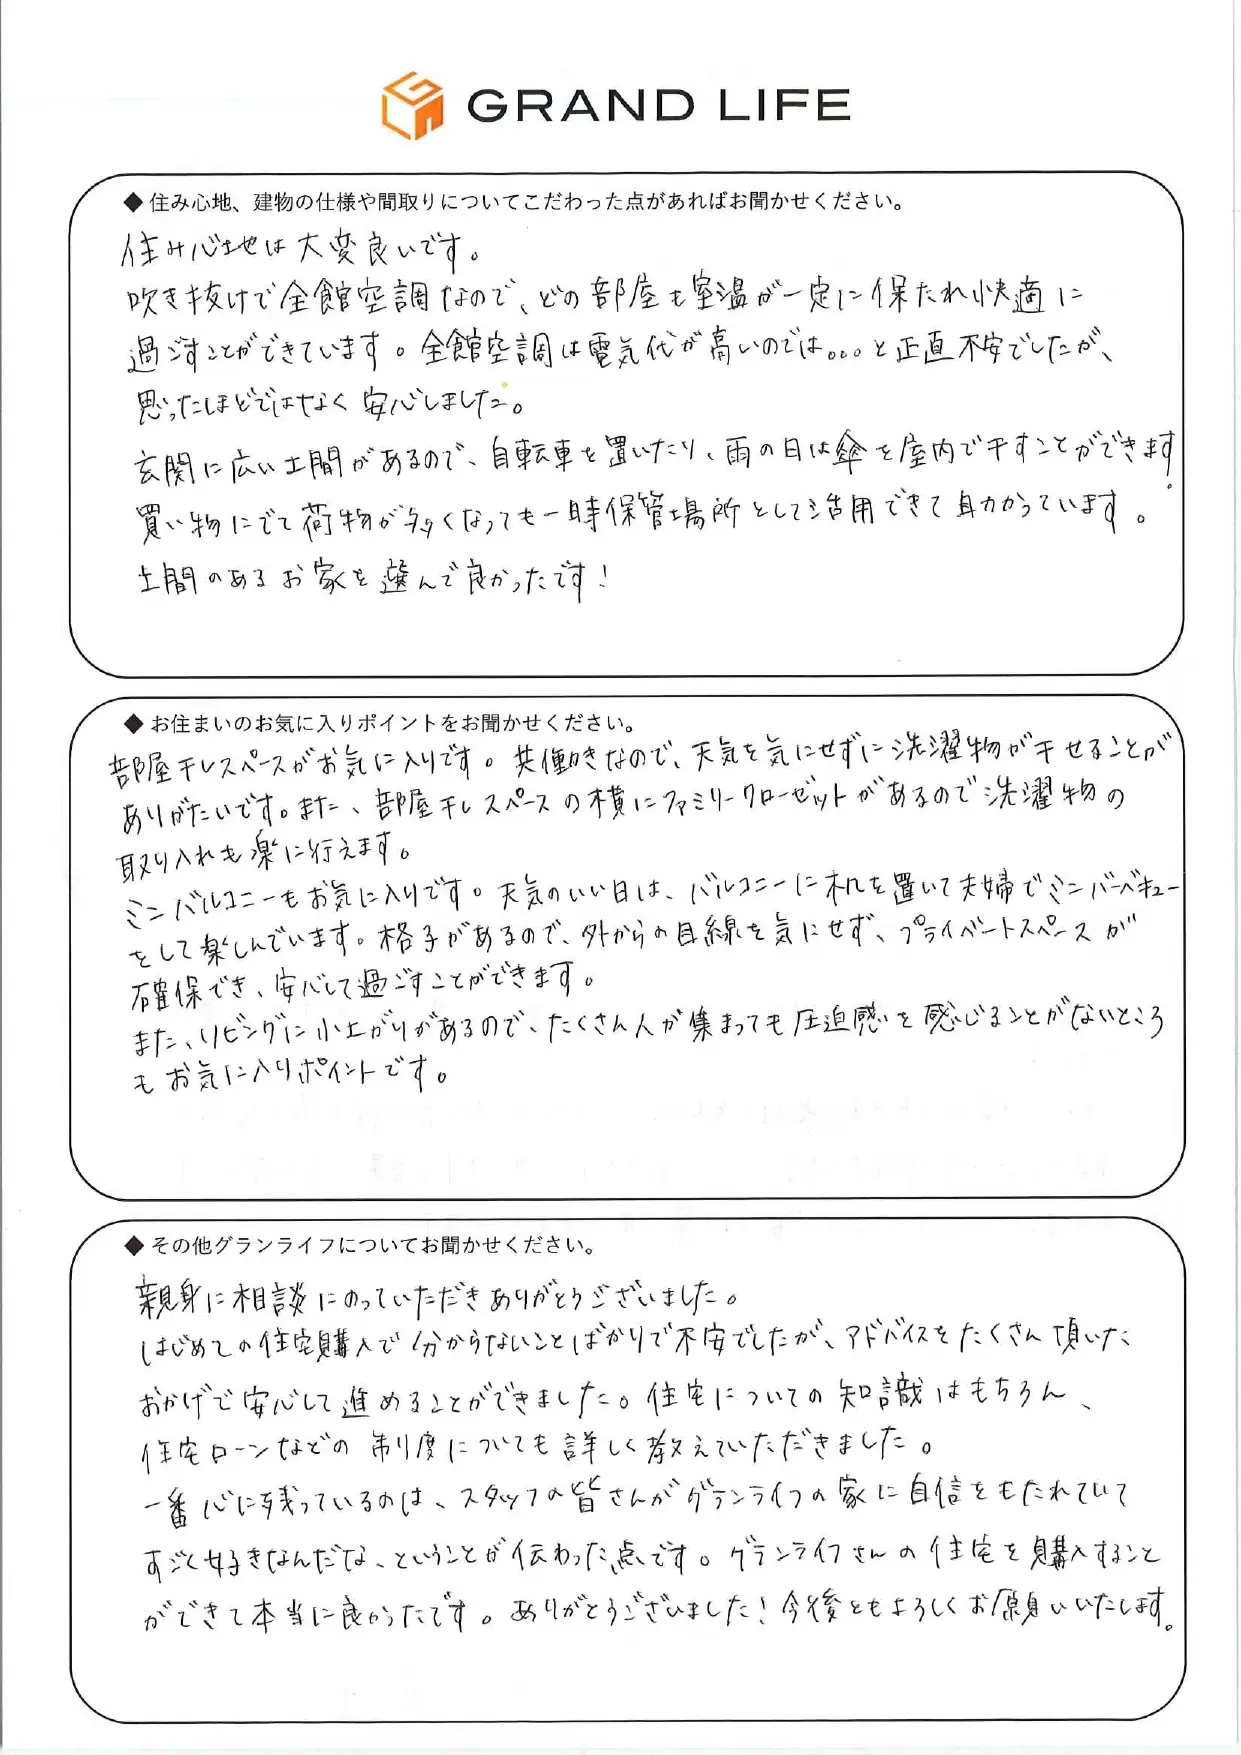 GRAND LIFE
◆ 住み心地、建物の仕様や間取りについてこだわった点があればお聞かせください。
住み心地は大変良いです。
吹き抜けで全館空調なので、どの部屋も室温が一定に保たれ快適に
過ごすことができています。全館空調は電気代が高いのでは...と正直不安でしたが、
思ったほどではなく安心しました。
玄関に広い土間があるので、自転車を置いたり、雨の日は傘を屋内で干すことができます。
買い物にでて荷物が多くなっても一時保管場所として活用できて助かっています。
土間のあるお家を選んで良かったです!
◆ お住まいのお気に入りポイントをお聞かせください。
部屋干しスペースがお気に入りです。共働きなので、天気を気にせずに洗濯物が干せることが
ありがたいです。また、部屋干しスペースの横にファミリークローゼットがあるので洗濯物の
取り入れも楽に行えます。
ミンバルコニーもお気に入りです。天気のいい日は、バルコニーに机を置いて夫婦でミンバーベキュー
をして楽しんでいます。格子があるので、外からの目線を気にせず、プライベートスペースが
確保でき、安心して過ごすことができます。
また、リビングに小上がりがあるので、たくさん人が集まっても圧迫感を感じることがないところ
もお気に入りポイントです。
◆ その他グランライフについてお聞かせください。
親身に相談にのっていただきありがとうございました。
はじめての住宅購入で分からないことばかりで不安でしたが、アドバイスをたくさん頂いた
おかげで安心して進めることができました。住宅についての知識はもちろん、
住宅ローンなどの制度についても詳しく教えていただきました。
一番心に残っているのは、スタッフの皆さんがグランライフの家に自信をもたれていて
すごく好きなんだな、ということが伝わった点です。グランライフさんの住宅を購入すること
ができて本当に良かったです。ありがとうございました!今後ともよろしくお願いいたします。